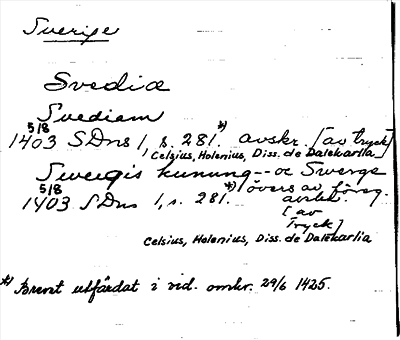 Sverige
Svediæ
Svediam
5/8
1403 SDns 1, s. 281.*) avskr. [av tryck]
Celsius, Holenius, Diss. de Dalekarlia]
Swergis kunung -- oc Swerge
5/8
1403 SDns 1, s. 281.*) övers av föreg.
avskr.
[av
Tryck]
Celsius, Holenius, Diss. de Dalekarlia
*) Brevet utfärdat i vid. omkr. 29/6 1425.